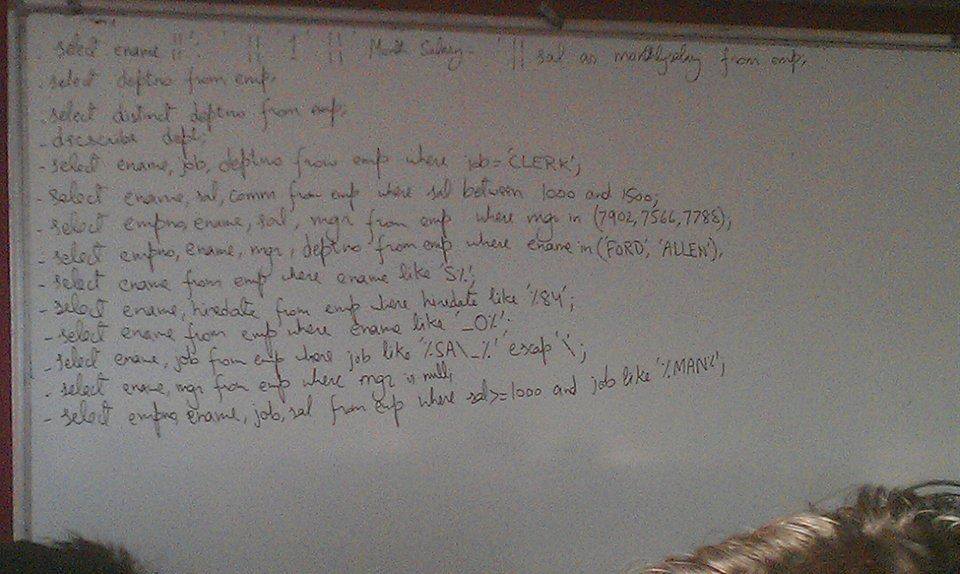 . select ename ||': ' || '1' || ' Month Salary- ' || sal as monthlysalary from emp;
. select deptno from emp;
. select distinct deptno from emp;
- describe dept;
- select ename, job, deptno from emp where job='CLERK';
- select ename, sal, comm from emp where sal between 1000 and 1500;
- select empno, ename, sal, mgr from emp where mgr in (7902,7566,7788);
- select empno, ename, mgr, deptno from emp where ename in ('FORD', 'ALLEN');
- select ename from emp where ename like 'S%';
- select ename, hiredate from emp where hiredate like '%84';
- select ename from emp where ename like '_O%';
- select ename, job from emp where job like '%SA\_%' escap '\';
- select ename, mgr from emp where mgr is null;
- select empno, ename, job, sal from emp where sal>=1000 and job like '%MAN%';